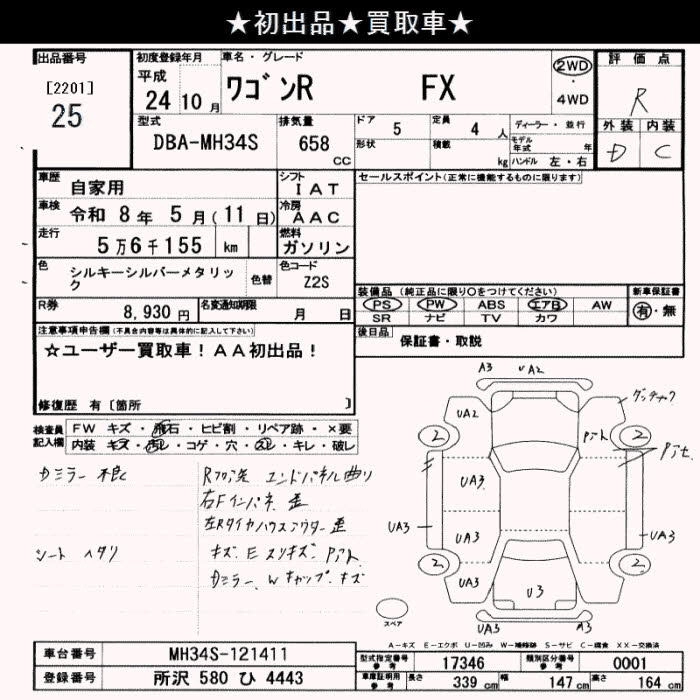 ★初出品★買取車★
出品番号
[2201]
25
初度登録年月
平成
24 10 月
車名・グレード
ワゴンR FX
2WD
4WD
評価点
R
外装 内装
D C
型式
DBA-MH34S
排気量
658
cc
ドア 5
定員 4 人
形状
積載 kg
ディーラー・並行
モデル年式 年
ハンドル 左・右
車歴 自家用
シフト IAT
車検 令和 8 年 5 月(11 日)
冷房 AAC
走行 5万6千155 km
燃料 ガソリン
色 シルキーシルバーメタリック
色替
色コード Z2S
R券 8,930 円
名変通知期限 月 日
セールスポイント(正常に機能するものに限ります)
装備品(純正品に限り○をつけてください)
PS PW ABS エアB AW
SR ナビ TV カワ
新車保証書
有・無
後日品 保証書・取説
注意事項申告欄(不具合内容等は具体的に記入して下さい)
☆ユーザー買取車!AA初出品!
修復歴 有〔箇所 〕
検査員記入欄
FW キズ・飛石・ヒビ割・リペア跡・×要
内装 キズ・汚レ・コゲ・穴・スレ・キレ・破レ
Dミラー 不良
シート ヘタリ
Rフロア先 エンドパネル曲り
右Fインパネ 歪
左Rタイヤハウスアウター 歪
キズ.E スリキズ.Pアト
Dミラー.Wキャップ.キズ
A3
UA2
UA2
タッチアック
2
Pアト
2
UA3
UA3
UA3
UA3
UA3
2
2
UA3
U3
A3
スペア
A-キズ E-エクボ U-凹み W-補修跡 S-サビ C-腐食 XX-交換済
車台番号 MH34S-121411
登録番号 所沢 580 ひ 4443
型式指定番号 17346
類別区分番号 0001
車庫証明用参考
長さ 339 cm
幅 147 cm
高さ 164 cm